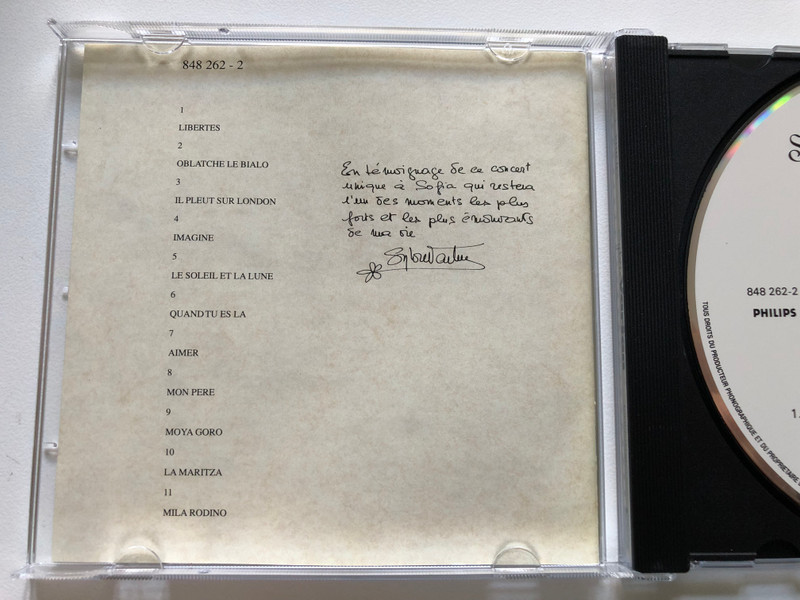 848 262 - 2
1
LIBERTES
2
OBLATCHE LE BIALO
3
IL PLEUT SUR LONDON
4
IMAGINE
5
LE SOLEIL ET LA LUNE
6
QUAND TU ES LA
7
AIMER
8
MON PERE
9
MOYA GORO
10
LA MARITZA
11
MILA RODINO
En témoignage de ce concert
unique à Sofia qui restera
l'un des moments les plus
forts et les plus émouvants
de ma vie
Sylvie Vartan
S
848 262-2
PHILIPS
1.
TOUS DROITS DU PRODUCTEUR PHONOGRAPHIQUE ET DU PROPRIETAIRE